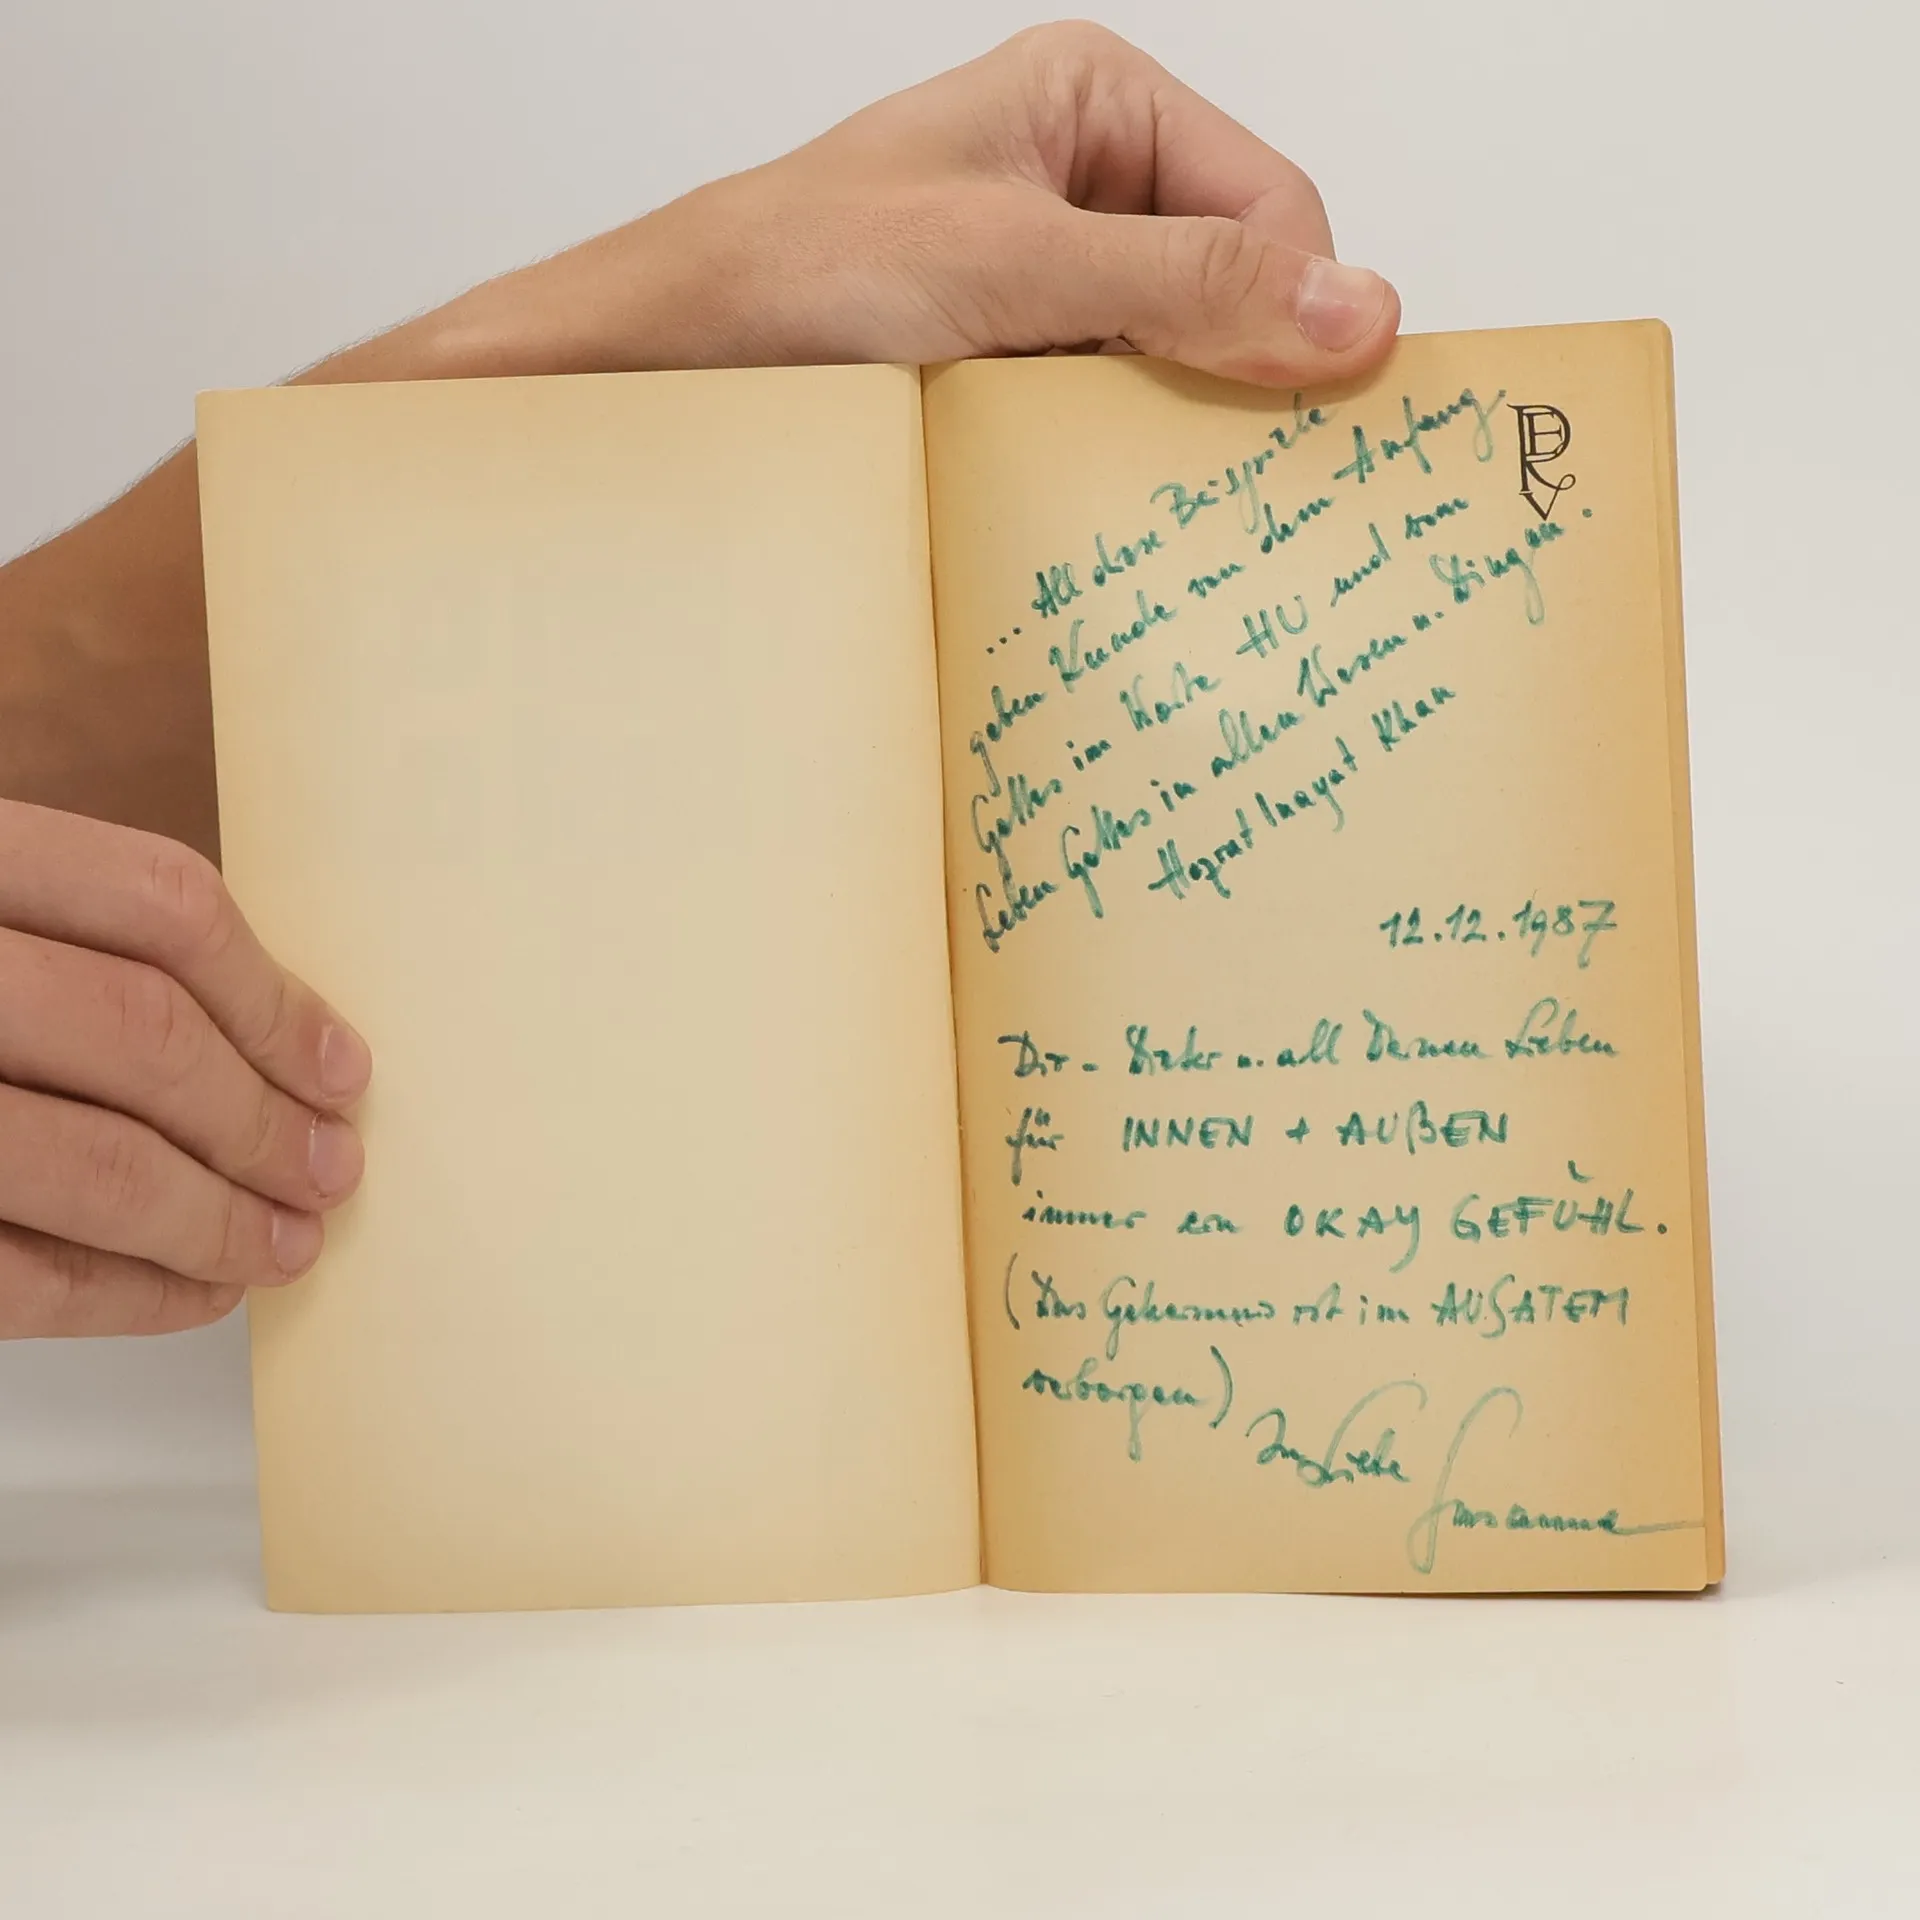 ... All diese Beispiele
geben Kunde von dem Anfang
Gottes im Worte HU und vom
Leben Gottes in allen Wesen u. Dingen.
Hazrat Inayat Khan
ERV
12.12.1987
Dir - Dieter u. all Deinen Lieben
für INNEN + AUßEN
immer ein OKAY GEFÜHL.
(Das Geheimnis ist im AUSATEM
verborgen)
In Liebe
Susanne